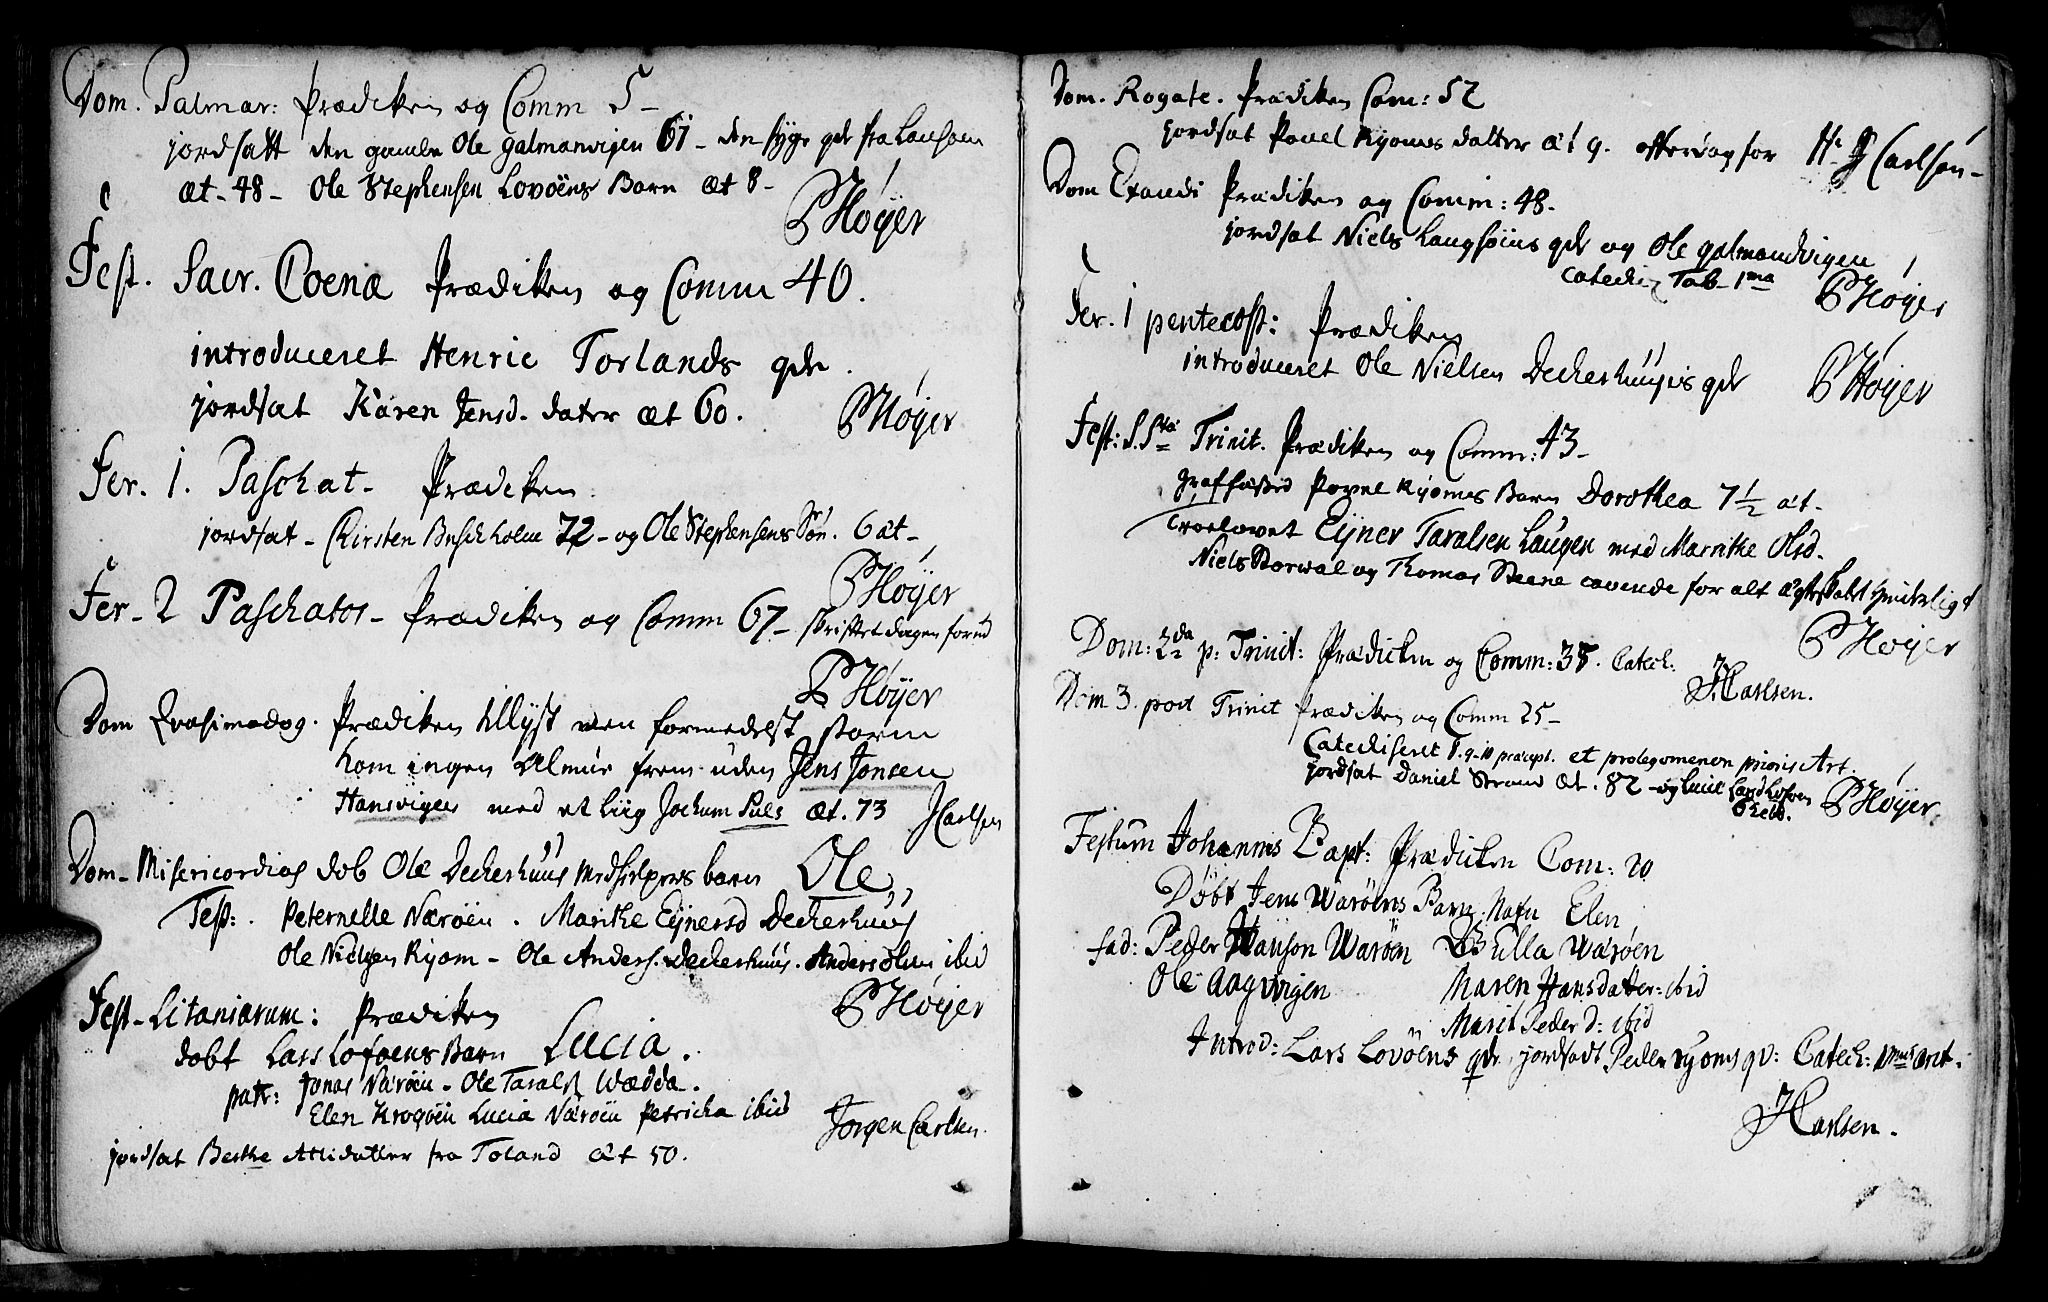 Dom. Palmar: Prædiken og Comm 5-
jordsatt den gamle Ole galmanvigen 61 - den syge qde fra Lausoen
æt - 48 - Ole Stephensen Lovøens Barn æt 8 -
PHøyer
Fest. Sacr. Coenæ Prædiken og Comm 40.
introduceret Henric Torlands qde.
jordsat Karen Jensd. dater æt 60.
PHøyer
Fer. 1. Paschat - Prædiken
jordsat - Kirsten Buschholm 72 - og Ole Stephensens Søn. 6 æt -
PHøyer
Fer - 2 Paschatos - Prædiken og Comm 67 - skriftet dagen forud
PHøyer
Dom Qvasimodog. Prædiken tillyst men formedelst storm
kom ingen Almue frem uden Jens Jonsen
Hansvigen med et liig Jochum Puls æt. 73 JCarlsen
Dom - Misericordias døb Ole Deckerhuus Medhielpers barn Ole
Test: Peternelle Nærøen. Maritke Eynersd Deckerhuus
Ole Nielsen Ryom - Ole Anders. Deckerhuus. Anders Olsen ibid
PHøyer
Fest - Litaniarum: Prædiken
døbt Lars Lofoens Barn Lucia.
patr: Jonas Nærøen - Ole Taralds Wædda.
Elen Krogøen Lucia Nærøen Petricha ibid
Jørgen Carlsen.
jordsat Berthe datter fra Toland æt 50.
Dom. Rogate. Prædiken Com: 52
jordsat Povel Ryomes datter æt 9. efterdag for Hr J Carlsen -
Dom Exaudi Prædiken og Comm: 48.
jordsat Niels Laugsøins qde og Ole galmandvigen
Catechiz Tab - 1ma PHøyer
Fer. 1 pentecost: Prædiken
introduceret Ole Nielsen Deckerhuusis qde PHøyer
Fest: S. Stæ Trinit. Prædiken og Comm: 43 -
Povel Ryomes Barn Dorothea 7 1/2 æt -
Troelovet Eyner Taralsen Laugen med Maritke Olsd.
Niels Storwal og Thomas Steene cavende for alt ægteskabet hinderligt
PHøyer
Dom: 2da p: Trinit: Prædicken og Comm: 35. Catech:
JCarlsen.
Dom 3. post Trinit Prædiken og Comm 25 -
Catechiseret 8. 9 - 10 præcept. et prolegomenon prioris Art.
jordsat Daniel Strand æt. 82 - og
PHøyer
Festum Johannis Bapt: Prædicken Com: 20
Døbt Jens Warøens Barn: Nafn Elen
fad: Peder Hanson Warøen Gulla Warøen
Ole Aagvigen Maren Hansdatter: ibid
Marit Peder D: ibid
Introd: Lars Lovøens qde jordsadt Peder ryoms qv: Catech: 1mus art:
JCarlsen.